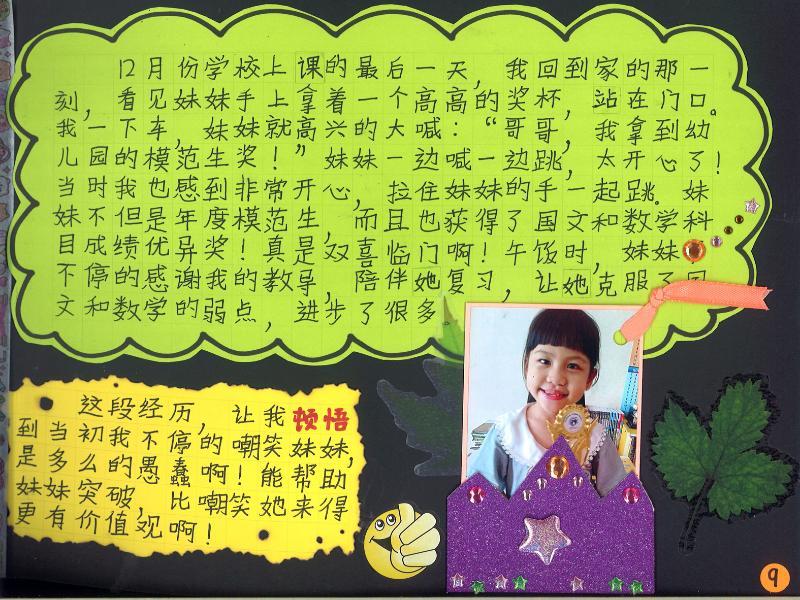 12月份学校上课的最后一天，我回到家的那一
刻，看见妹妹手上拿着一个高高的奖杯，站在门口。
我一下车，妹妹就高兴的大喊：“哥哥，我拿到幼
儿园的模范生奖！”妹妹一边喊一边跳，太开心了！
当时我也感到非常开心，拉住妹妹的手一起跳。妹
妹不但是年度模范生，而且也获得了国文和数学科
目成绩优异奖！真是双喜临门啊！午饭时，妹妹
不停的感谢我的教导，陪伴她复习，让她克服了国
文和数学的弱点，进步了很多。
这段经历，让我顿悟
到当初我不停的嘲笑妹妹，
是多么的愚蠢啊！能帮助
妹妹突破，比嘲笑她来得
更有价值观啊！
9